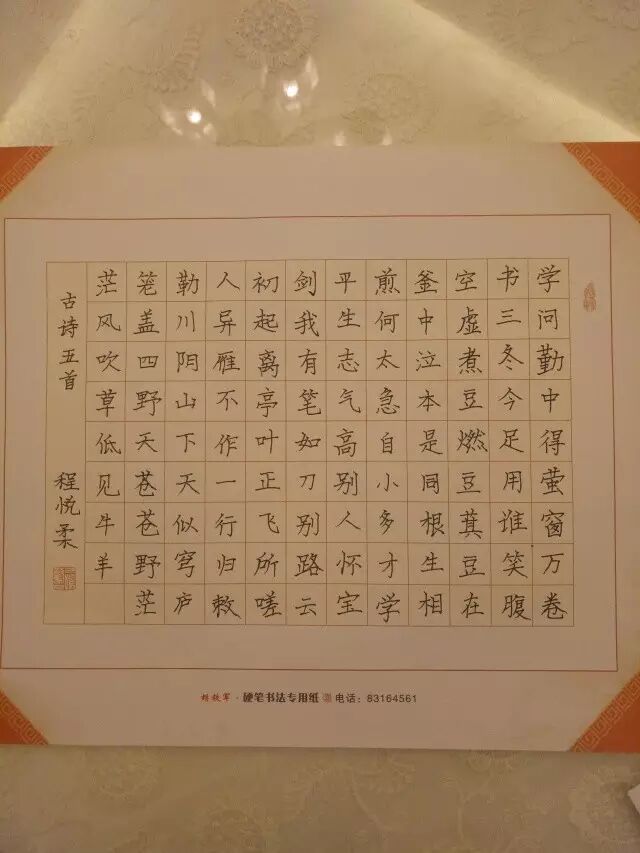 学问勤中得萤窗万卷
书三冬今足用谁笑腹
空虚煮豆燃豆萁豆在
釜中泣本是同根生相
煎何太急自小多才学
平生志气高别人怀宝
剑我有笔如刀别路云
初起离亭叶正飞所嗟
人异雁不作一行归敕
勒川阴山下天似穹庐
笼盖四野天苍苍野茫
茫风吹草低见牛羊
古诗五首 程悦柔
·硬笔书法专用纸 电话：83164561